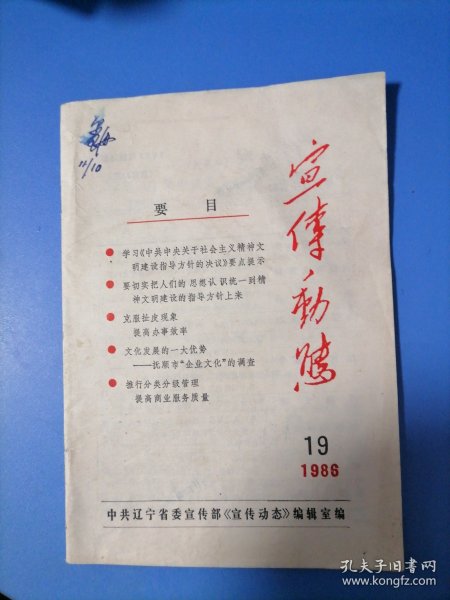 12/10
宣傳動態
要 目
学习《中共中央关于社会主义精神文
明建设指导方针的决议》要点提示
要切实把人们的思想认识统一到精
神文明建设的指导方针上来
克服扯皮现象
提高办事效率
文化发展的一大优势
——抚顺市“企业文化”的调查
推行分类分级管理
提高商业服务质量
19
1986
中共辽宁省委宣传部《宣传动态》编辑室编
孔夫子旧书网
www.kongfz.com